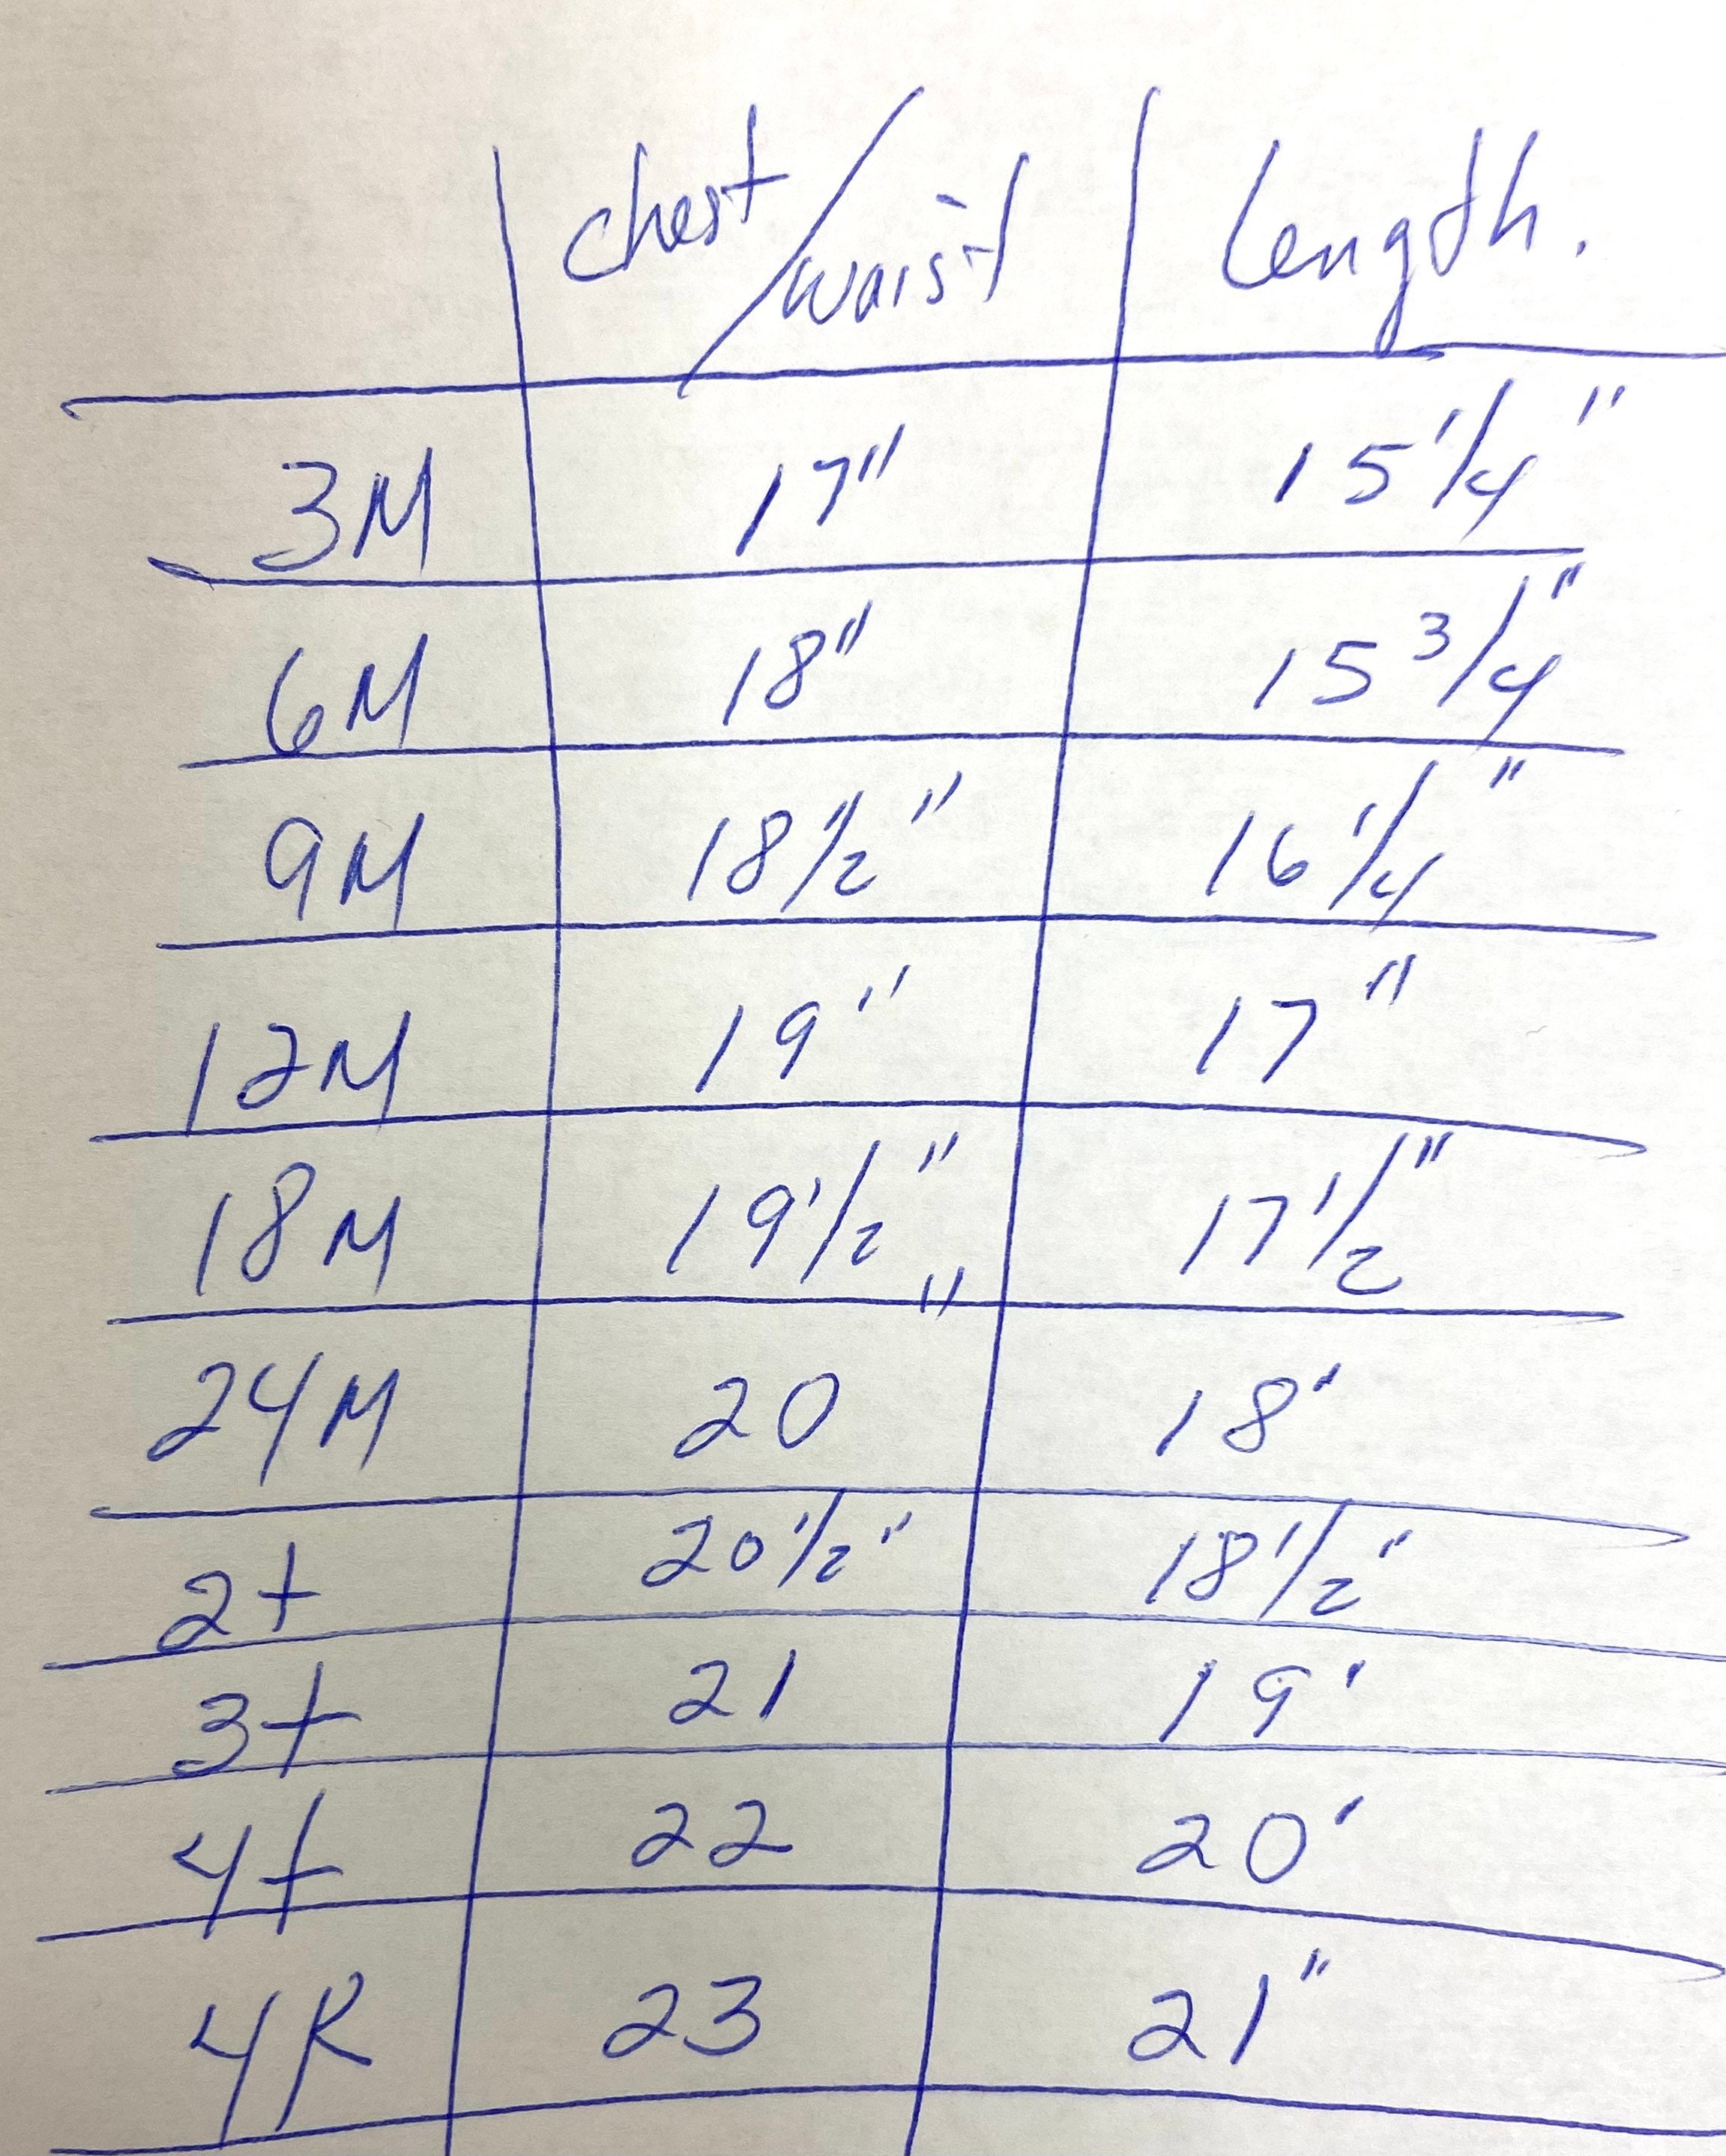 chest/waist length.
3M 17" 15 1/4"
6M 18" 15 3/4"
9M 18 1/2" 16 1/4"
12M 19" 17"
18M 19 1/2" 17 1/2"
24M 20" 18"
2t 20 1/2" 18 1/2"
3t 21 19'
4t 22 20'
4R 23 21"